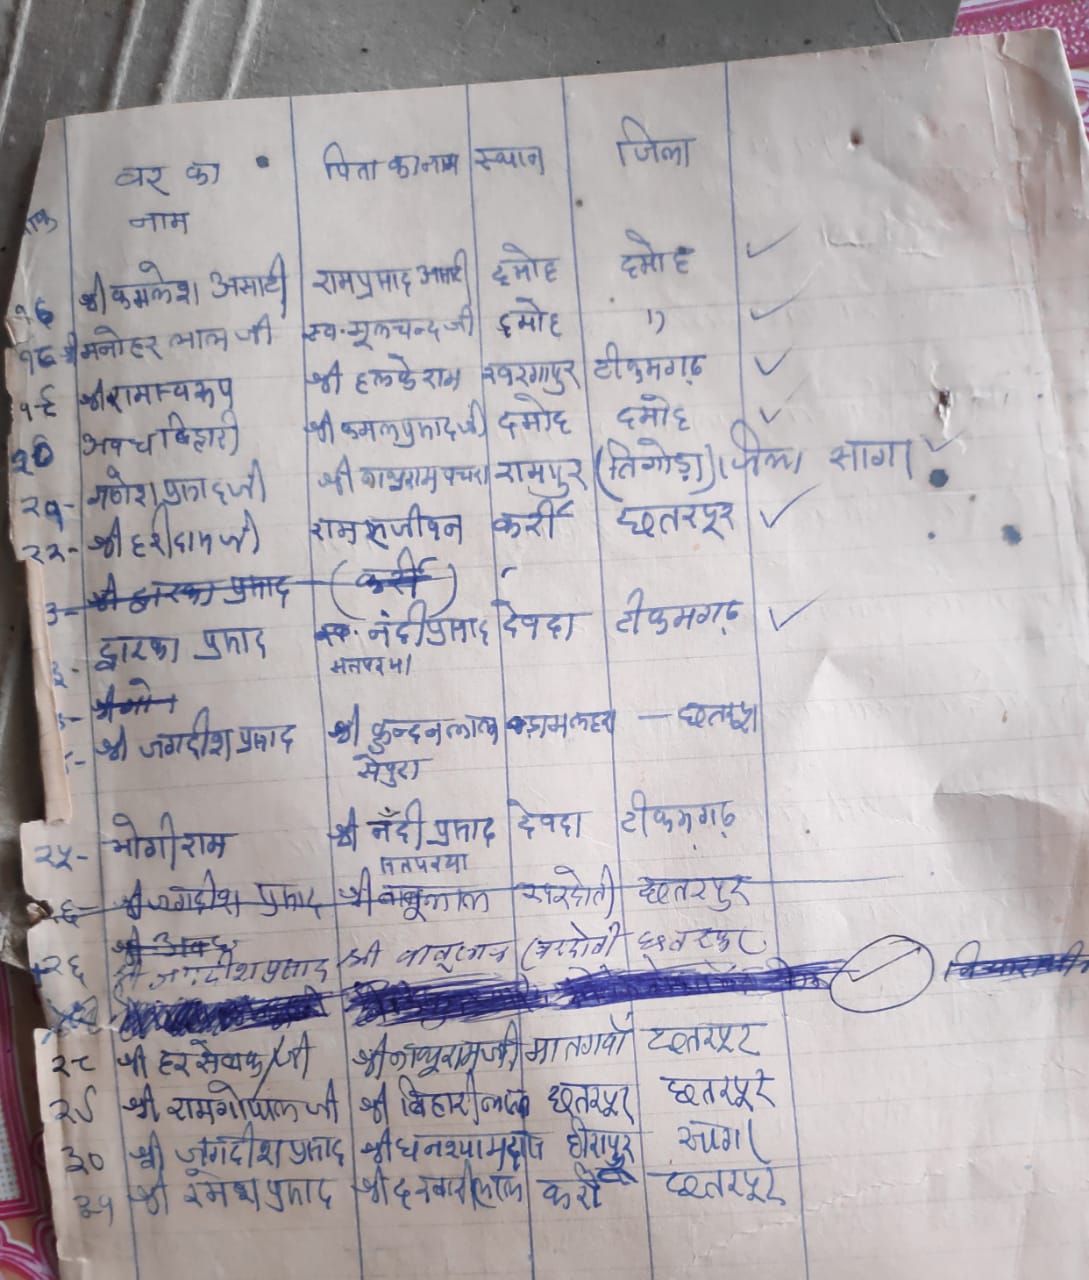 वर का पिता का नाम स्थान जिला
नाम
१७ श्री कमलेश असाटी रामप्रसाद असाटी दमोह दमोह ✓
१८ श्री मनोहर लाल जी स्व. मूलचन्द जी दमोह 1) ✓
१९ श्री रामस्वरूप श्री हलकेराम खरगापुर टीकमगढ़ ✓
२० अवध बिहारी श्री कमलप्रसाद जी दमोह दमोह ✓
२१- गणेश प्रसाद जी श्री नाथुराम पचरा रामपुर (तिगोड़ा) जिला सागर ✓
२२- श्री हरीदास जी राम सजीवन कर्री छतरपुर ✓
३- श्री द्वारका प्रसाद (कर्री)
३- द्वारका प्रसाद स्व. नंदी प्रसाद देवदा टीकमगढ़ ✓
सतपरया
श्री जगदीश प्रसाद श्री कुन्दनलाल बड़ामलहरा — छतरपुर
सेपुरा
२५- भोगीराम श्री नँदी प्रसाद देवदा टीकमगढ़
सतपरया
२६- श्री जगदीश प्रसाद श्री बाबूलाल खरदोती छतरपुर
श्री अवध
२६ श्री जगदीश प्रसाद श्री बाबूलाल खरदोती छतरपुर
✓
२८ श्री हर सेवक जी श्री नाथूराम जी मातगवाँ छतरपुर
२९ श्री रामगोपाल जी श्री बिहारीलाल छतरपुर छतरपुर
३० श्री जगदीश प्रसाद श्री घनश्यामदास हीरापुर सागर
३१ श्री रमेश प्रसाद श्री दरबारीलाल कर्री छतरपुर